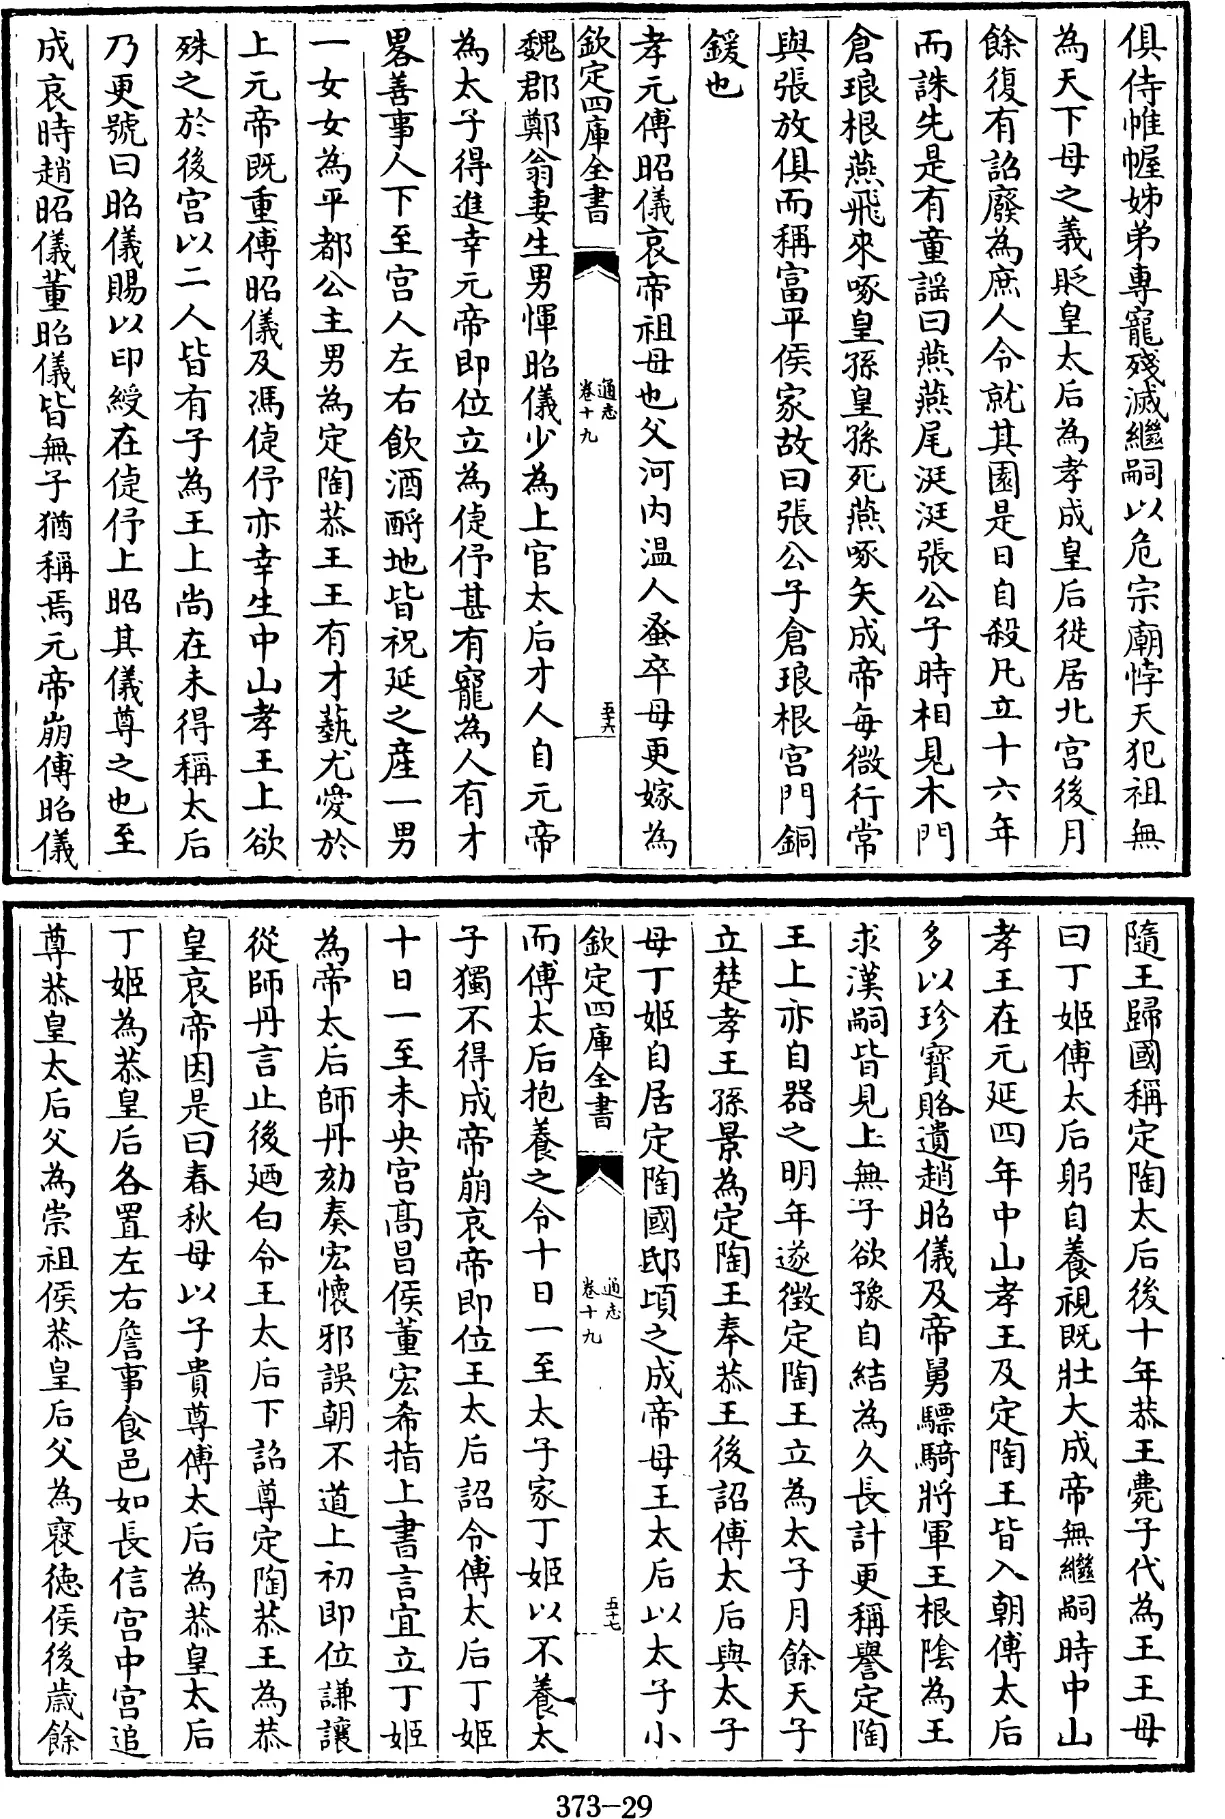 俱侍帷幄姊弟專寵殘滅繼嗣以危宗廟悖天犯祖無
為天下母之義貶皇太后為孝成皇后徙居北宮後月
餘復有詔廢為庶人令就其園是日自殺凡立十六年
而誅先是有童謡曰燕燕尾涏涏張公子時相見木門
倉琅根燕飛來啄皇孫皇孫死燕啄矢成帝每微行常
與張放俱而稱富平侯家故曰張公子倉琅根宮門銅
鍰也
孝元傅昭儀哀帝祖母也父河内温人蚤卒母更嫁為
欽定四庫全書
通志
卷十九
五十六
魏郡鄭翁妻生男惲昭儀少為上官太后才人自元帝
為太子得進幸元帝即位立為倢伃甚有寵為人有才
畧善事人下至宮人左右飲酒酹地皆祝延之産一男
一女女為平都公主男為定陶恭王王有才藝尤愛於
上元帝既重傅昭儀及馮倢伃亦幸生中山孝王上欲
殊之於後宮以二人皆有子為王上尚在未得稱太后
乃更號曰昭儀賜以印綬在倢伃上昭其儀尊之也至
成哀時趙昭儀董昭儀皆無子猶稱焉元帝崩傅昭儀
隨王歸國稱定陶太后後十年恭王薨子代為王王母
曰丁姬傅太后躬自養視既壯大成帝無繼嗣時中山
孝王在元延四年中山孝王及定陶王皆入朝傅太后
多以珍寶賂遺趙昭儀及帝舅驃騎將軍王根陰為王
求漢嗣皆見上無子欲豫自結為久長計更稱譽定陶
王上亦自器之明年遂徵定陶王立為太子月餘天子
立楚孝王孫景為定陶王奉恭王後詔傅太后與太子
母丁姬自居定陶國邸頃之成帝母王太后以太子小
欽定四庫全書
通志
卷十九
五十七
而傅太后抱養之令十日一至太子家丁姬以不養太
子獨不得成帝崩哀帝即位王太后詔令傅太后丁姬
十日一至未央宮高昌侯董宏希指上書言宜立丁姬
為帝太后師丹劾奏宏懷邪誤朝不道上初即位謙讓
從師丹言止後廼白令王太后下詔尊定陶恭王為恭
皇哀帝因是曰春秋母以子貴尊傅太后為恭皇太后
丁姬為恭皇后各置左右詹事食邑如長信宮中宮追
尊恭皇太后父為崇祖侯恭皇后父為襃德侯後歲餘
373-29